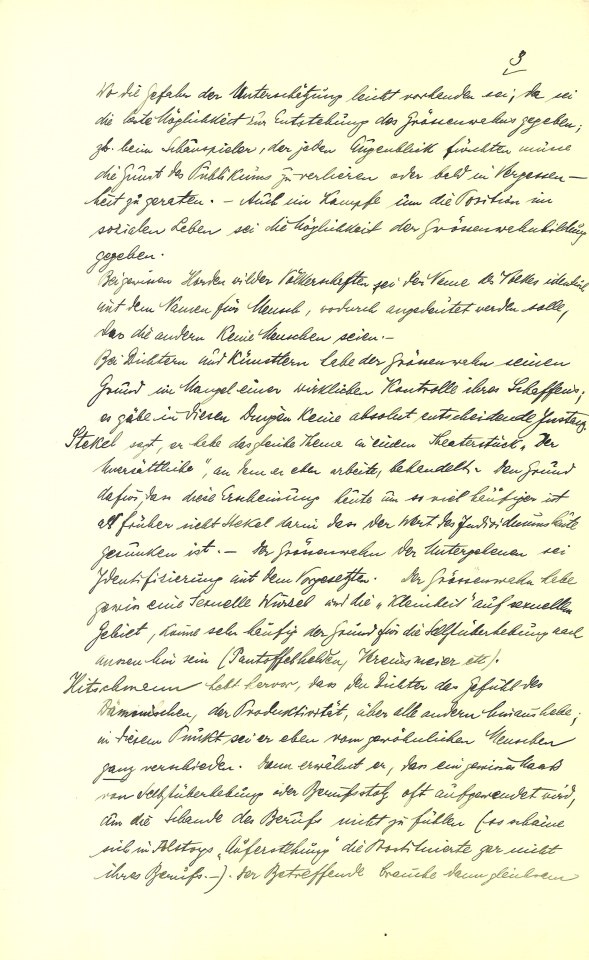 3
Wo die Gefahr der Unterschätzung leicht vorhanden sei, da sei
die erste Möglichkeit zur Entstehung des Grössenwahns gegeben;
zb. beim Schauspieler, der jeden Augenblick fürchten müsse
die Gunst des Publikums zu verlieren oder bald in Vergessen-
heit zu geraten. – Auch im Kampfe um die Position im
sozialen Leben sei die Möglichkeit der Grössenwahnbildung
gegeben.
Bei gewissen Horden wilder Völkerschaften sei der Name des Volkes identisch
mit dem Namen für Mensch, wodurch angedeutet werden solle,
dass die andern keine Menschen seien. –
Bei Dichtern und Künstlern habe der Grössenwahn seinen
Grund im Mangel einer wirklichen Kontrolle ihres Schaffens;
es gäbe in diesen Dingen keine absolut entscheidende Instanz
Stekel sagt, er habe das gleiche Thema in einem Theaterstück „Der
Unersättliche“, an dem er eben arbeite, behandelt. Den Grund
dafür, dass diese Erscheinung heute um so viel häufiger ist
als früher sieht Stekel darin dass der Wert des Individuums heute
gesunken ist. – Der Grössenwahn der Untergebenen sei
Identifizierung mit dem Vorgesetzten. Der Grössenwahn habe
gewiss eine sexuelle Wurzel und die „Kleinheit“ auf sexuellem
Gebiet, könne sehr häufig der Grund für die Selbstüberhebung nach
aussen hin sein (Pantoffelhelden, Vereinsmeier etc).
Hitschmann hebt hervor, dass den Dichter das Gefühl des
Dämonischen, der Produktivität, über alle andern hinaushebe;
in diesem Punkt sei er eben vom gewöhnlichen Menschen
ganz verschieden. Dann erwähnt er, dass ein gewisses Maass
von Selbstüberhebung oder Berufsstolz oft aufgewendet wird,
um die Schande des Berufs nicht zu fühlen (so schäme
sich in Tolstoys „Auferstehung“ die Prostituierte gar nicht
ihres Berufs. –). Der Betreffende brauche dann gleichsam